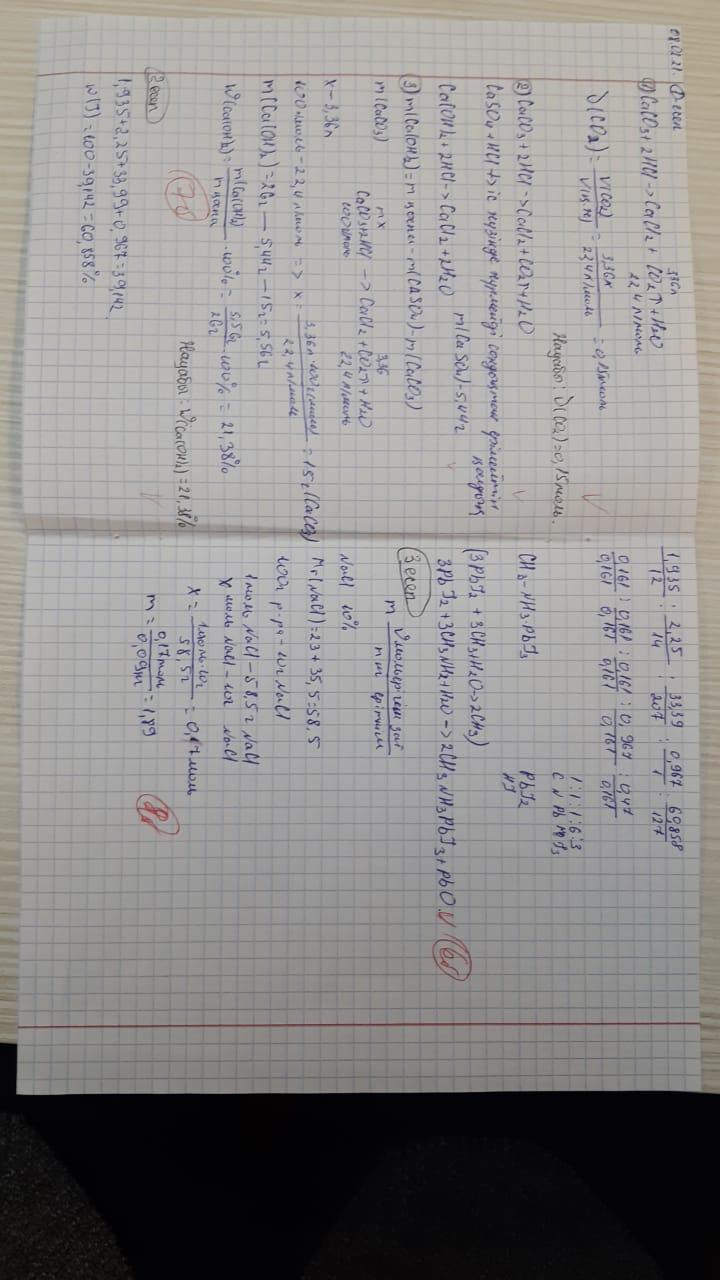 08.01.21. ①-есеп
① CaCO3 + 2HCl -> CaCl2 + CO2↑ + H2O
3,36л
22,4 л/моль
ϑ(CO2) = V(CO2) / V(н.м) = 3,36л / 22,4 л/моль = 0,15моль
Жауабы: ϑ(CO2) = 0,15моль.
② CaCO3 + 2HCl -> CaCl2 + CO2↑ + H2O
CaSO4 + HCl +> іс жүзінде жүрмейді сондықтан ерімейтін қалдық
Ca(OH)2 + 2HCl -> CaCl2 + 2H2O m(CaSO4) - 5,44г
③ m(Ca(OH)2) = m қоспа - m(CaSO4) - m(CaCO3)
m(CaCO3)
mx 3,36
CaCO3 + 2HCl -> CaCl2 + CO2↑ + H2O
100г/моль 22,4 л/моль
x - 3,36л
100г/моль - 22,4 л/моль => x = 3,36л · 100г/моль / 22,4 л/моль = 15г (CaCO3)
m(Ca(OH)2) = 26г — 5,44г - 15г = 5,56г
W(Ca(OH)2) = m(Ca(OH)2) / m қоспа · 100% = 5,56г / 26г · 100% = 21,38%
Жауабы: W(Ca(OH)2) = 21,38%
2 есеп
1,935 + 2,25 + 33,99 + 0,967 = 39,142
w(J) = 100 - 39,142 = 60,858%
1,935 / 12 : 2,25 / 14 : 33,39 / 207 : 0,967 / 1 : 60,858 / 127
0,161 / 0,161 : 0,161 / 0,161 : 0,161 / 0,161 : 0,967 / 0,161 : 0,47 / 0,161
1:1:1:6:3
C N Pb H6 J3
CH3-NH3PbJ3 PbJ2
HJ
(3PbJ2 + 3CH3NH2O -> 2CH3)
3PbJ2 + 3CH3NH2 + H2O -> 2CH3NH3PbJ3 + PbO
6б
3 есеп
m
NaCl 10%
Mr(NaCl) = 23 + 35,5 = 58,5
100г р-ра - 10г NaCl
1моль NaCl - 58,5г NaCl
x моль NaCl - 10г NaCl
x = 1моль · 10г / 58,5г = 0,17моль
m = 0,17моль / 0,09кг = 1,89
8б